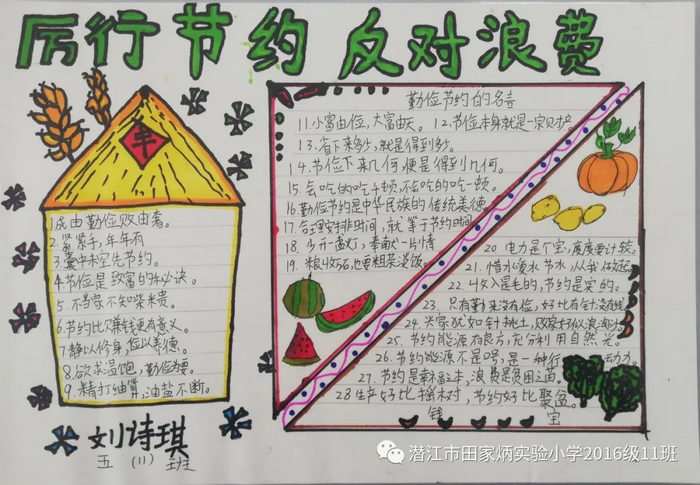 厉行节约 反对浪费
丰
1.成由勤俭败由奢。
2.紧紧手,年年有
3.要牛未宝先节约。
4.节俭是致富的秘诀。
5.不当家不知柴米贵。
6.节约比赚钱更有意义。
7.静以修身,俭以养德。
8.欲求温饱,勤俭为要。
9.精打细算,油盐不断。
刘诗琪
五(11)班
勤俭节约的名言
11.小富由俭,大富由天。12.节俭本身就是一宗财产。
13.省下来多少,就是得到多少。
14.节俭下来几何,便是得到几何。
15.会吃的吃千顿,不会吃的吃一顿。
16.勤俭节约是中华民族的传统美德。
17.合理安排时间,就等于节约时间。
18.少开一盏灯,奉献一片情
19.粮收万石,也要粗茶淡饭。
20.电力是个宝,度度要计较。
21.惜水 爱水 节水,从我做起。
22.斗文是毛的,节约是实的。
23.只有勤来没有俭,好比有针没有线
24.兴家犹如针挑土,败家好似浪淘沙
25.节约能源有良方,充分利用自然光。
26.节约能源不是口号,是一种行 动力。
27.节约是幸福之本,浪费是贫困之苗。
28.生产好比摇钱树,节约好比聚宝盆。
潜江市田家炳实验小学2016级11班